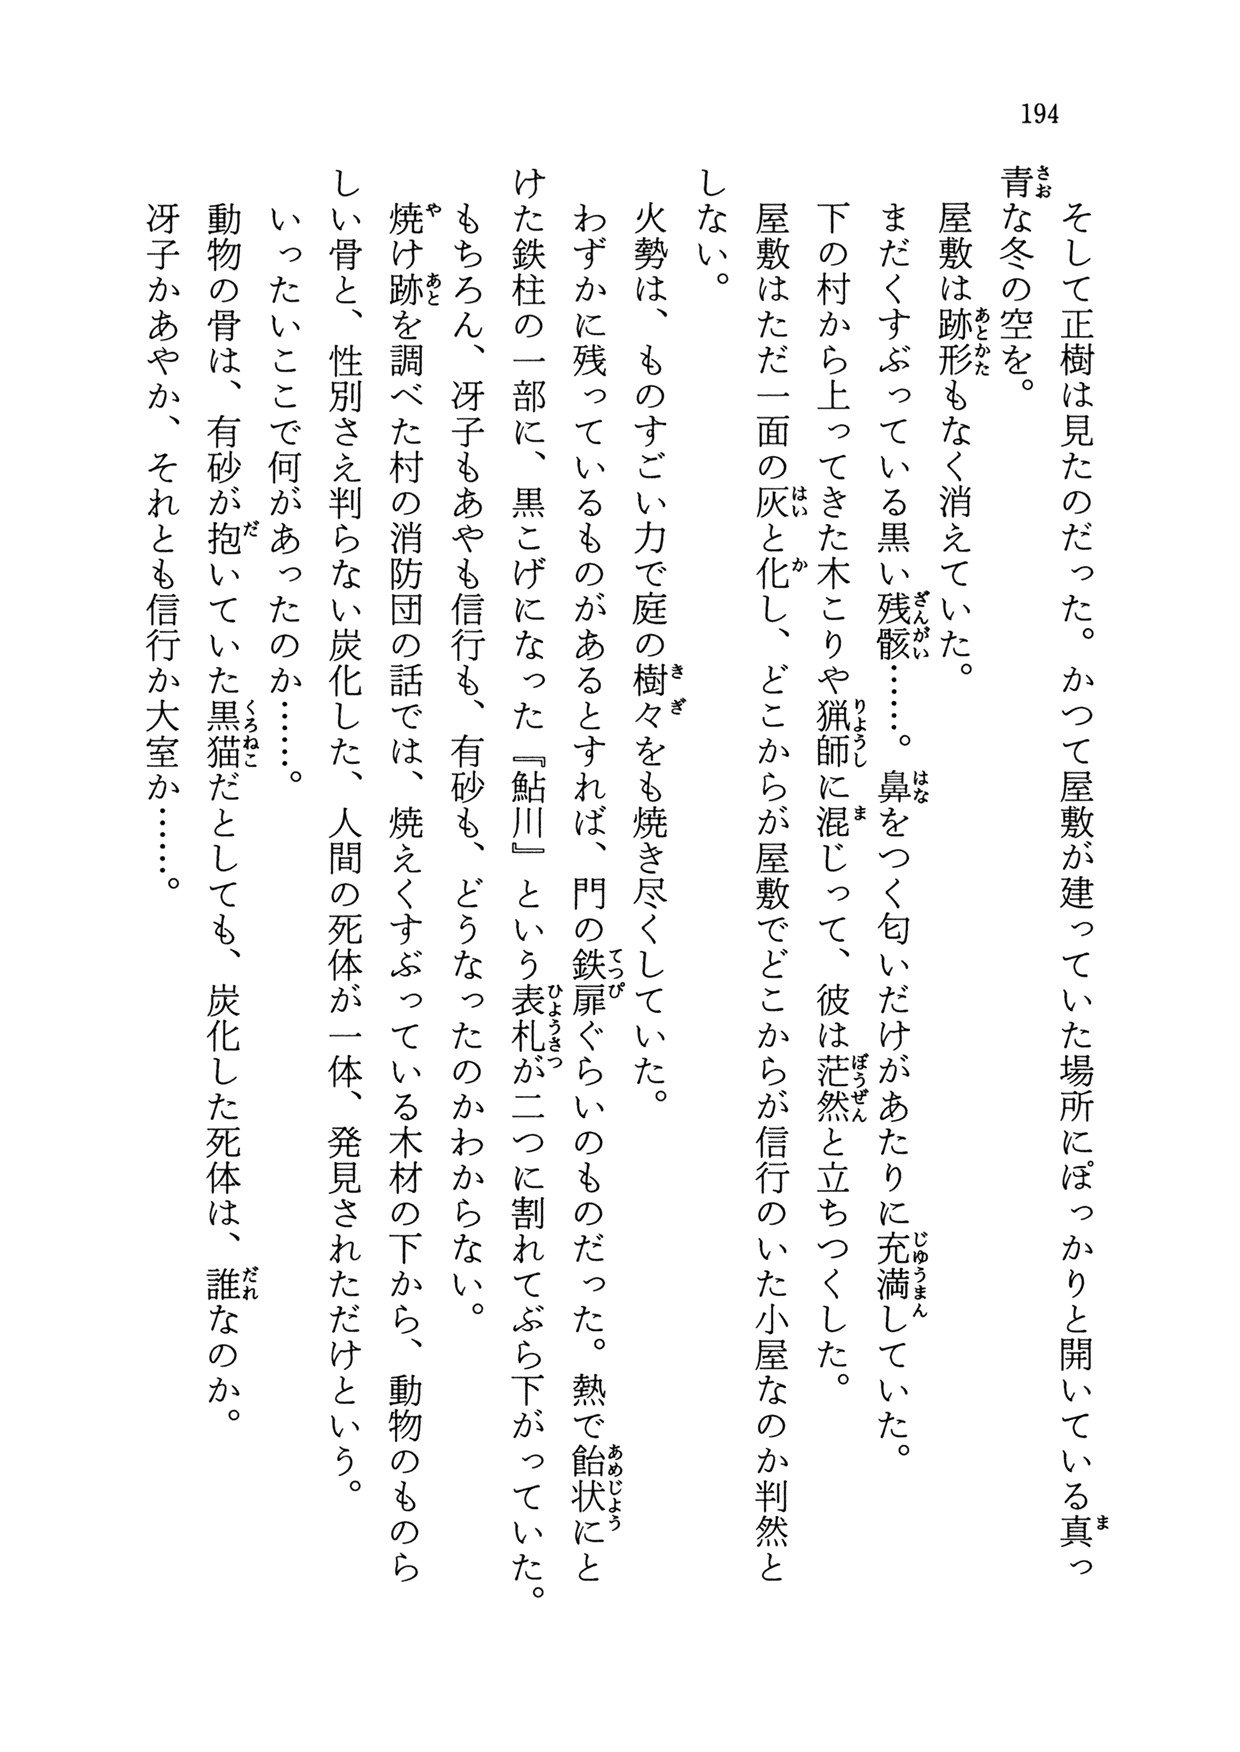 194
そして正樹は見たのだった。かつて屋敷が建っていた場所にぽっかりと開いている真っ
青な冬の空を。
屋敷は跡形もなく消えていた。
まだくすぶっている黒い残骸……。鼻をつく匂いだけがあたりに充満していた。
下の村から上ってきた木こりや猟師に混じって、彼は茫然と立ちつくした。
屋敷はただ一面の灰と化し、どこからが屋敷でどこからが信行のいた小屋なのか判然と
しない。
火勢は、ものすごい力で庭の樹々をも焼き尽くしていた。
わずかに残っているものがあるとすれば、門の鉄扉ぐらいのものだった。熱で飴状にと
けた鉄柱の一部に、黒こげになった『鮎川』という表札が二つに割れてぶら下がっていた。
もちろん、冴子もあやも信行も、有砂も、どうなったのかわからない。
焼け跡を調べた村の消防団の話では、焼えくすぶっている木材の下から、動物のものら
しい骨と、性別さえ判らない炭化した、人間の死体が一体、発見されただけという。
いったいここで何があったのか……。
動物の骨は、有砂が抱いていた黒猫だとしても、炭化した死体は、誰なのか。
冴子かあやか、それとも信行か大室か……。